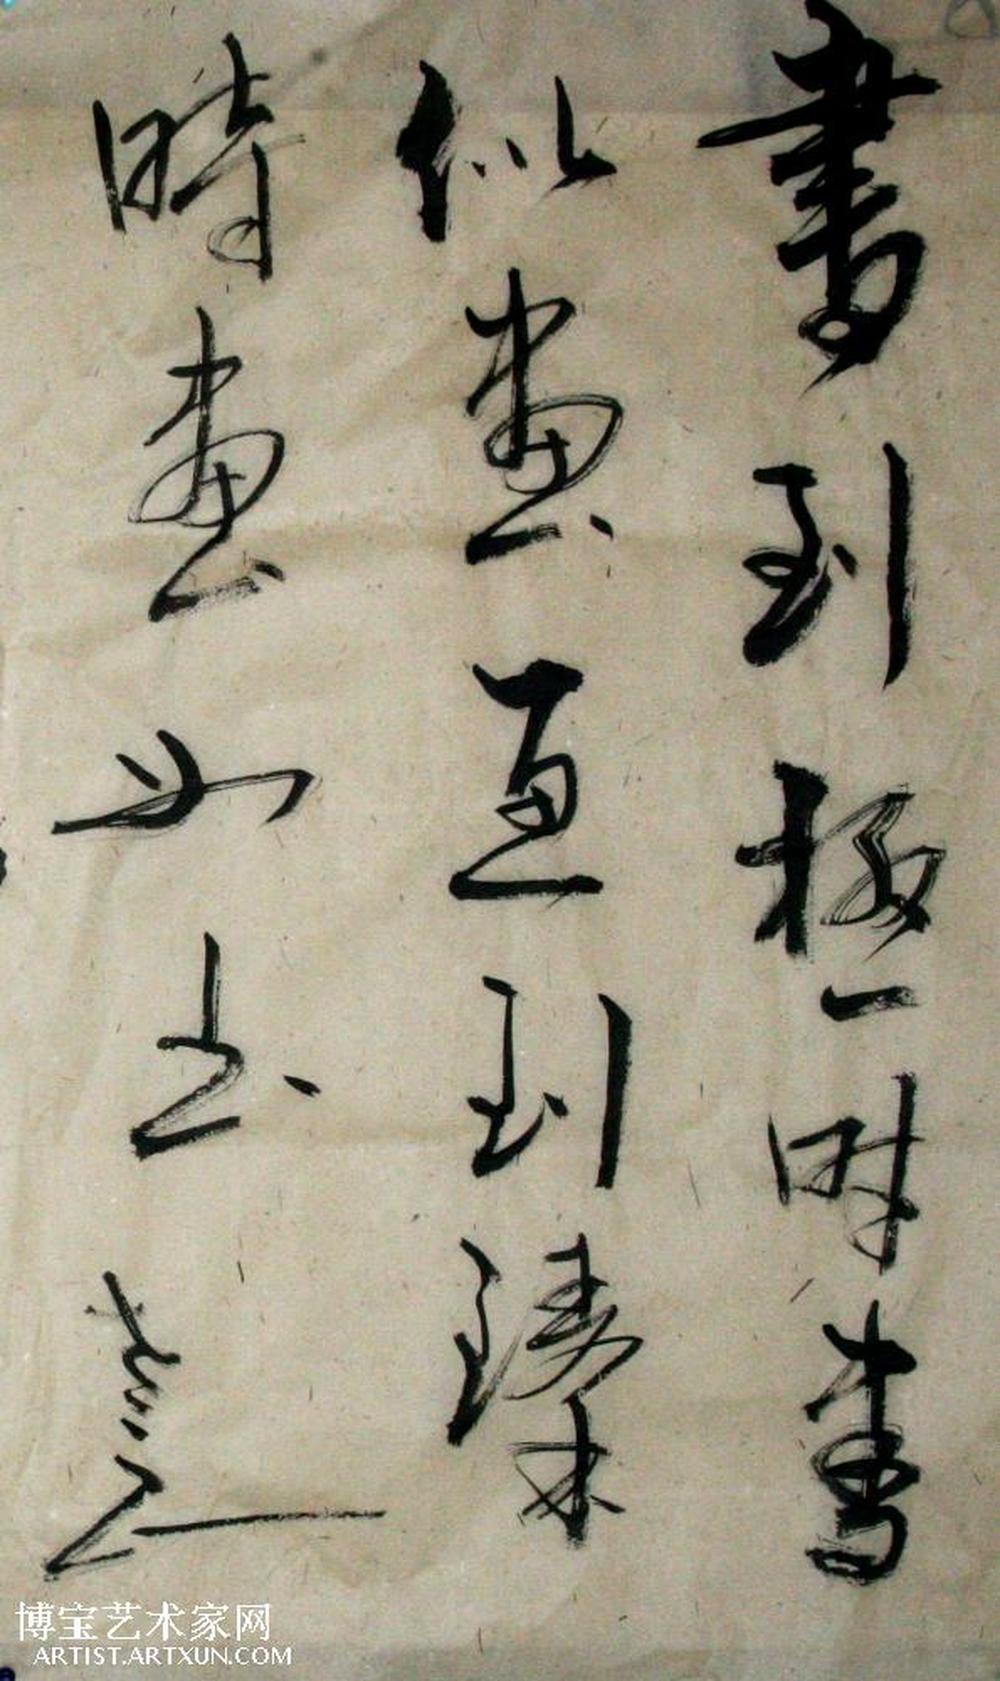 書到極時書
似畫画到臻
時畫如书
博宝艺术家网
ARTIST.ARTXUN.COM